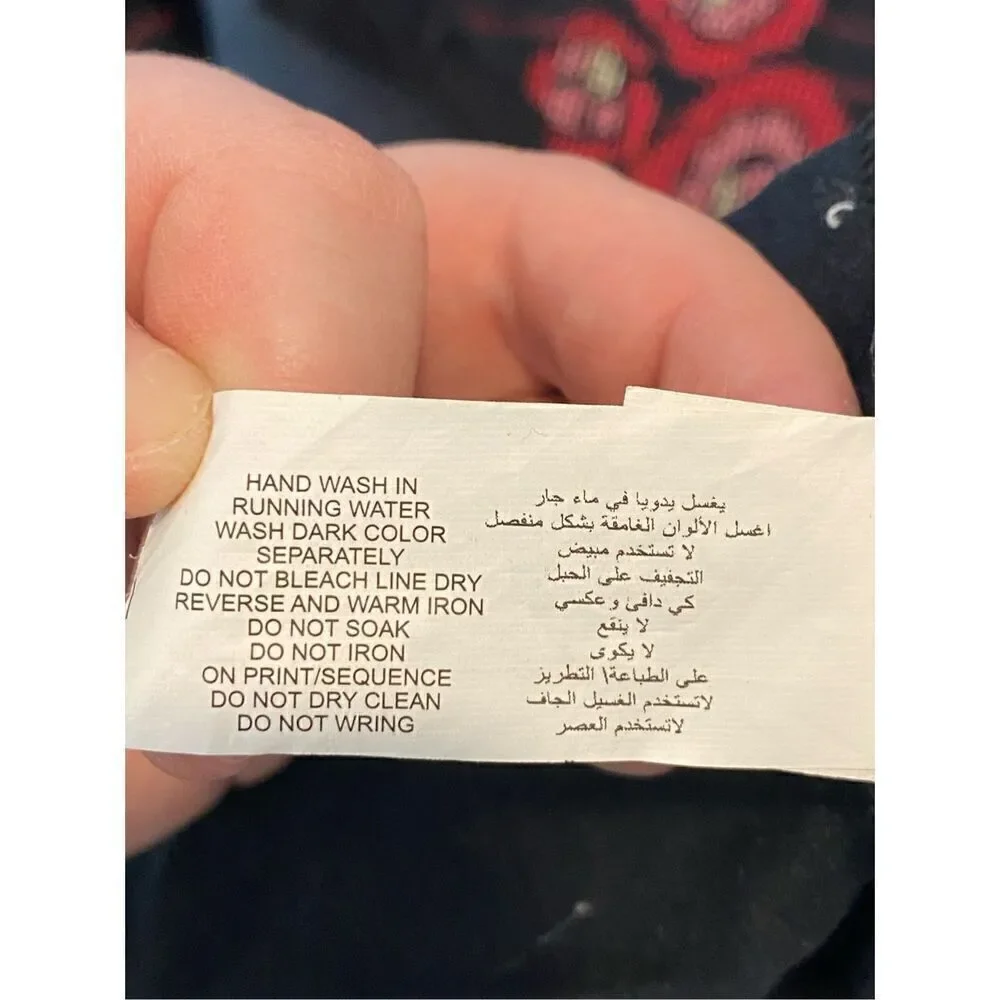 HAND WASH IN
RUNNING WATER
WASH DARK COLOR
SEPARATELY
DO NOT BLEACH LINE DRY
REVERSE AND WARM IRON
DO NOT SOAK
DO NOT IRON
ON PRINT/SEQUENCE
DO NOT DRY CLEAN
DO NOT WRING
يغسل يدويا في ماء جار
اغسل الألوان الغامقة بشكل منفصل
لا تستخدم مبيض
التجفيف على الحبل
كي دافئ و عكسي
لا ينقع
لا يكوى
على الطباعة\ التطريز
لاتستخدم الغسيل الجاف
لاتستخدم العصر